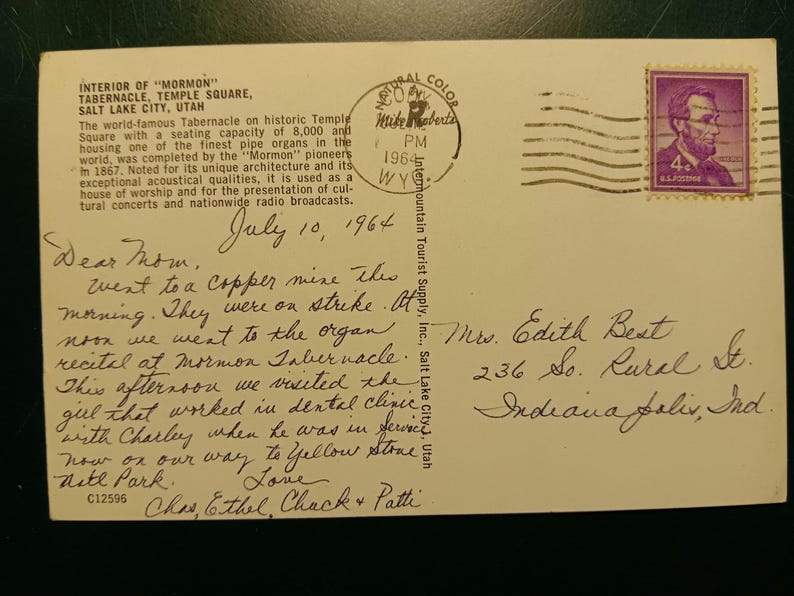 INTERIOR OF "MORMON"
TABERNACLE, TEMPLE SQUARE,
SALT LAKE CITY, UTAH
The world-famous Tabernacle on historic Temple
Square with a seating capacity of 8,000 and
housing one of the finest pipe organs in the
world, was completed by the "Mormon" pioneers
in 1867. Noted for its unique architecture and its
exceptional acoustical qualities, it is used as a
house of worship and for the presentation of cul-
tural concerts and nationwide radio broadcasts.
NATURAL COLOR
by
Mike Roberts
PM
1964
WYO
4¢
U.S. POSTAGE
July 10, 1964
Dear Mom,
Went to a copper mine this
morning. They were on strike. At
noon we went to the organ
recital at Mormon Tabernacle.
This afternoon we visited the
girl that worked in dental clinic
with Charley when he was in Service
now on our way to Yellow Stone
Natl Park. Love
Chas, Ethel, Chuck & Patti
C12596
Intermountain Tourist Supply, Inc., Salt Lake City 1, Utah
Mrs. Edith Best
236 So. Rural St.
Indianapolis, Ind.